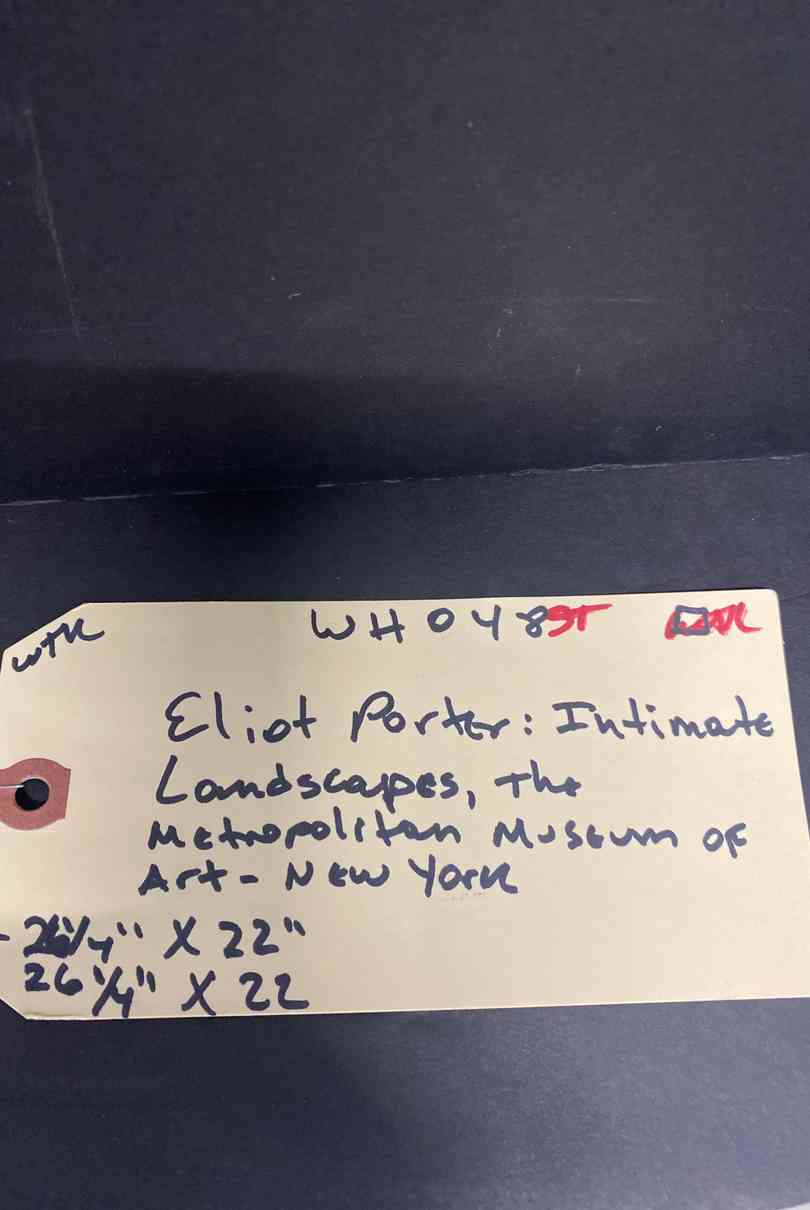 WTK WH048ST
Eliot Porter: Intimate
Landscapes, The
Metropolitan Museum of
Art - New York
- 26 1/4" X 22"
26 1/4" X 22